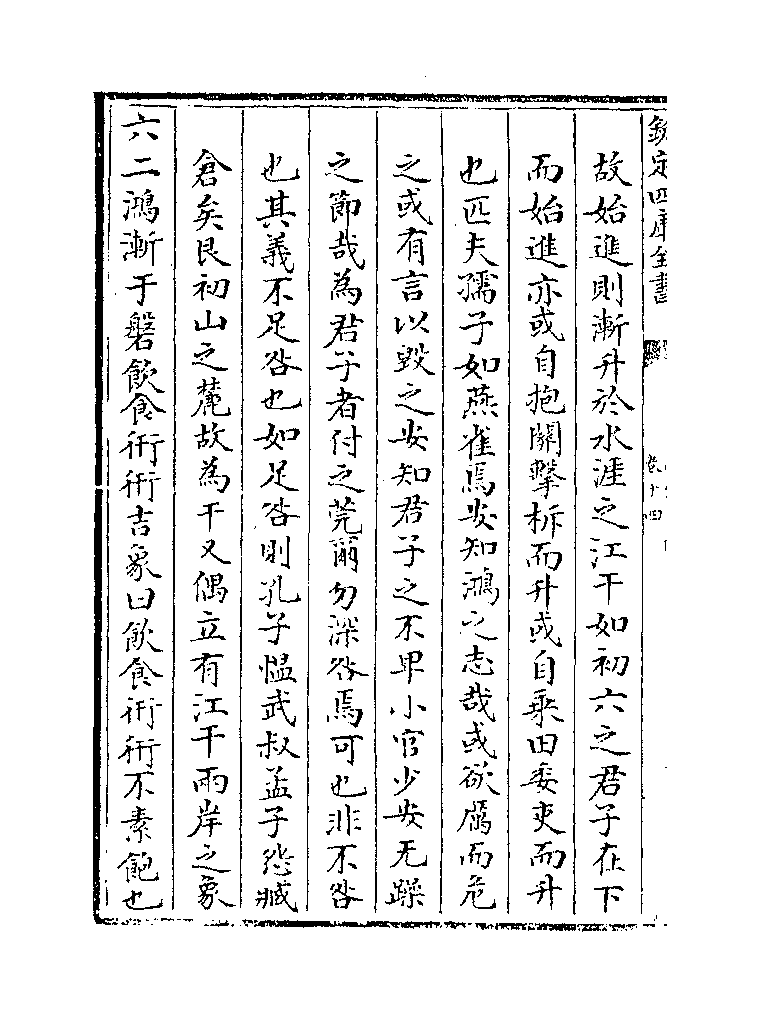 欽定四庫全書
卷十四
故始進則漸升於水涯之江干如初六之君子在下
而始進亦或自抱關擊柝而升或自乘田委吏而升
也匹夫孺子如燕雀焉安知鴻之志哉或欲厲而危
之或有言以毀之安知君子之不卑小官少安无躁
之節哉為君子者付之莞爾勿深咎焉可也非不咎
也其義不足咎也如足咎則孔子愠武叔孟子怨臧
倉矣艮初山之麓故為干又偶立有江干兩岸之象
六二鴻漸于磐飲食衎衎吉象曰飲食衎衎不素飽也